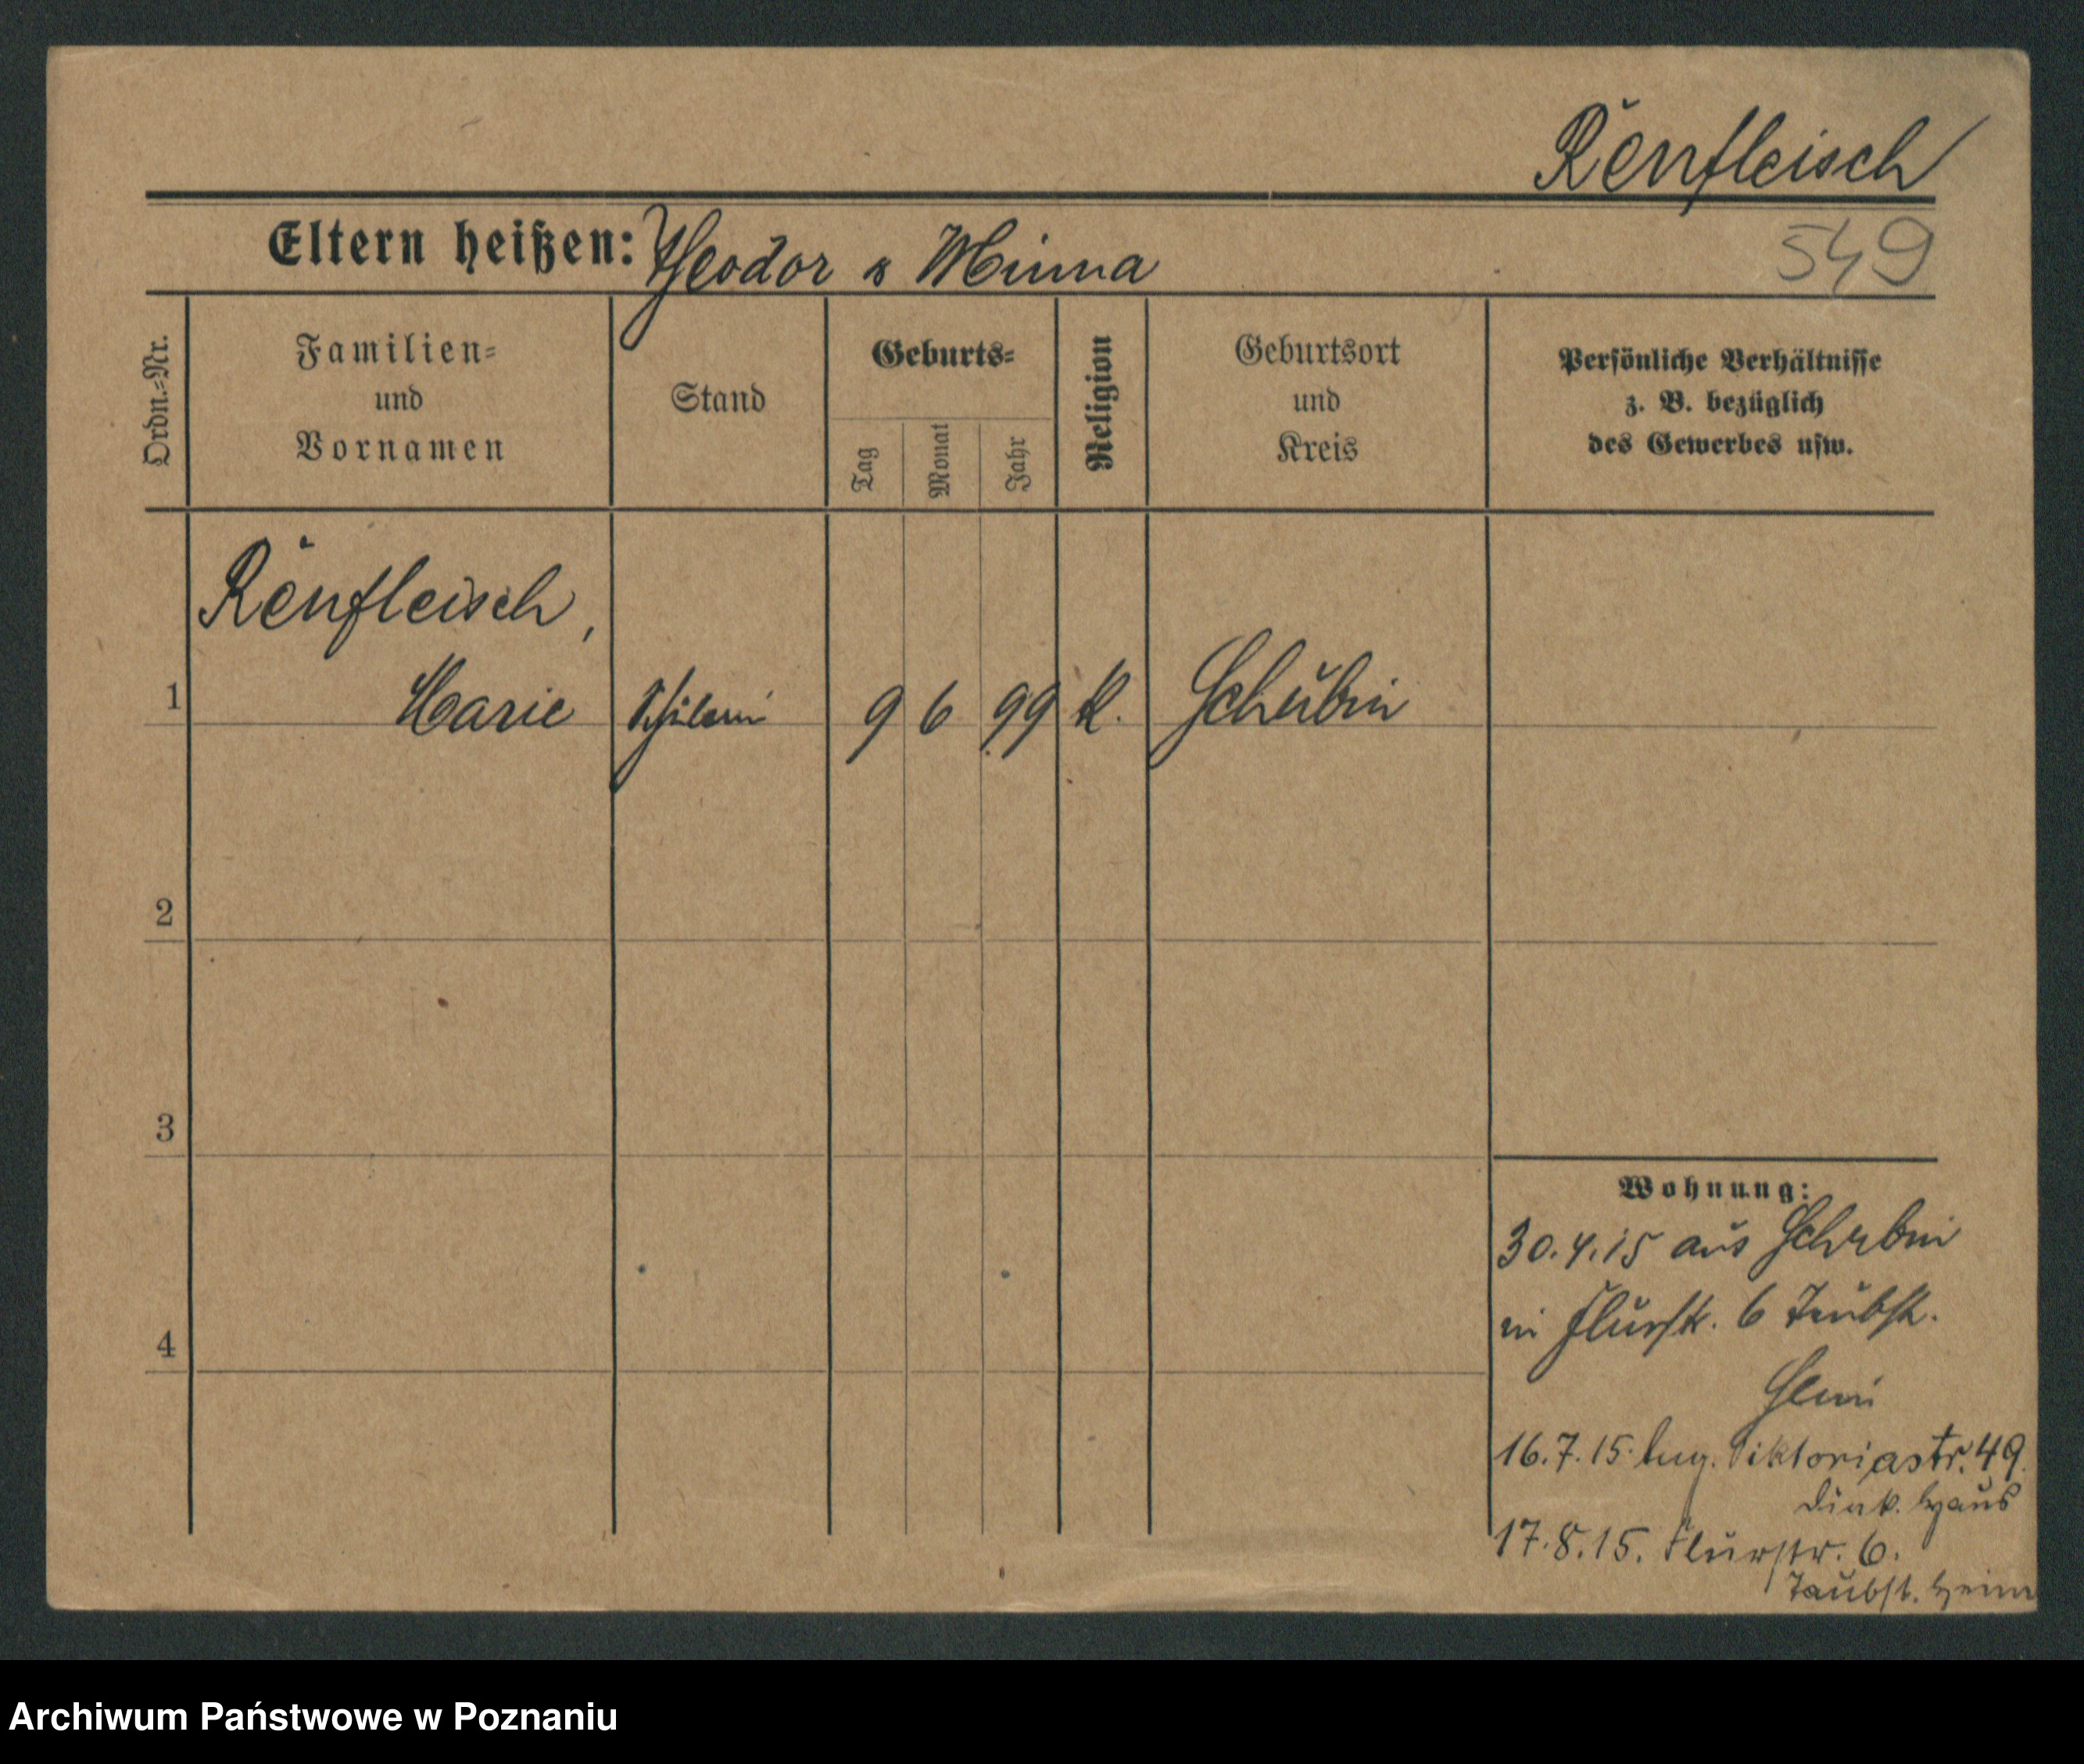 Rĕnfleisch
Eltern heißen: Theodor & Minna
549
Ordn.-Nr.
Familien-
und
Vornamen
Stand
Geburts-
Tag
Monat
Jahr
Religion
Geburtsort
und
Kreis
Persönliche Verhältnisse
z. B. bezüglich
des Gewerbes usw.
Renfleisch,
1 Marie Schülerin 9 6 99 K. Schubin
2
3
4
Wohnung:
30.4.15 aus Schubin
in Flurstr. 6 Taubst.
Heim
16.7.15 Viktoriastr. 49
Diak. Haus
17.8.15. Flurstr. 6.
Taubst. Heim
Archiwum Państwowe w Poznaniu